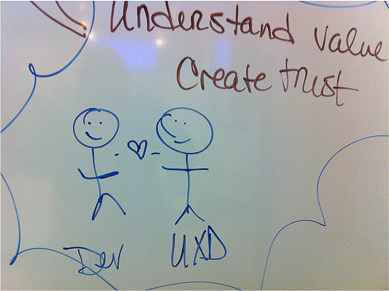 Understand value
Create trust
Dev UXD